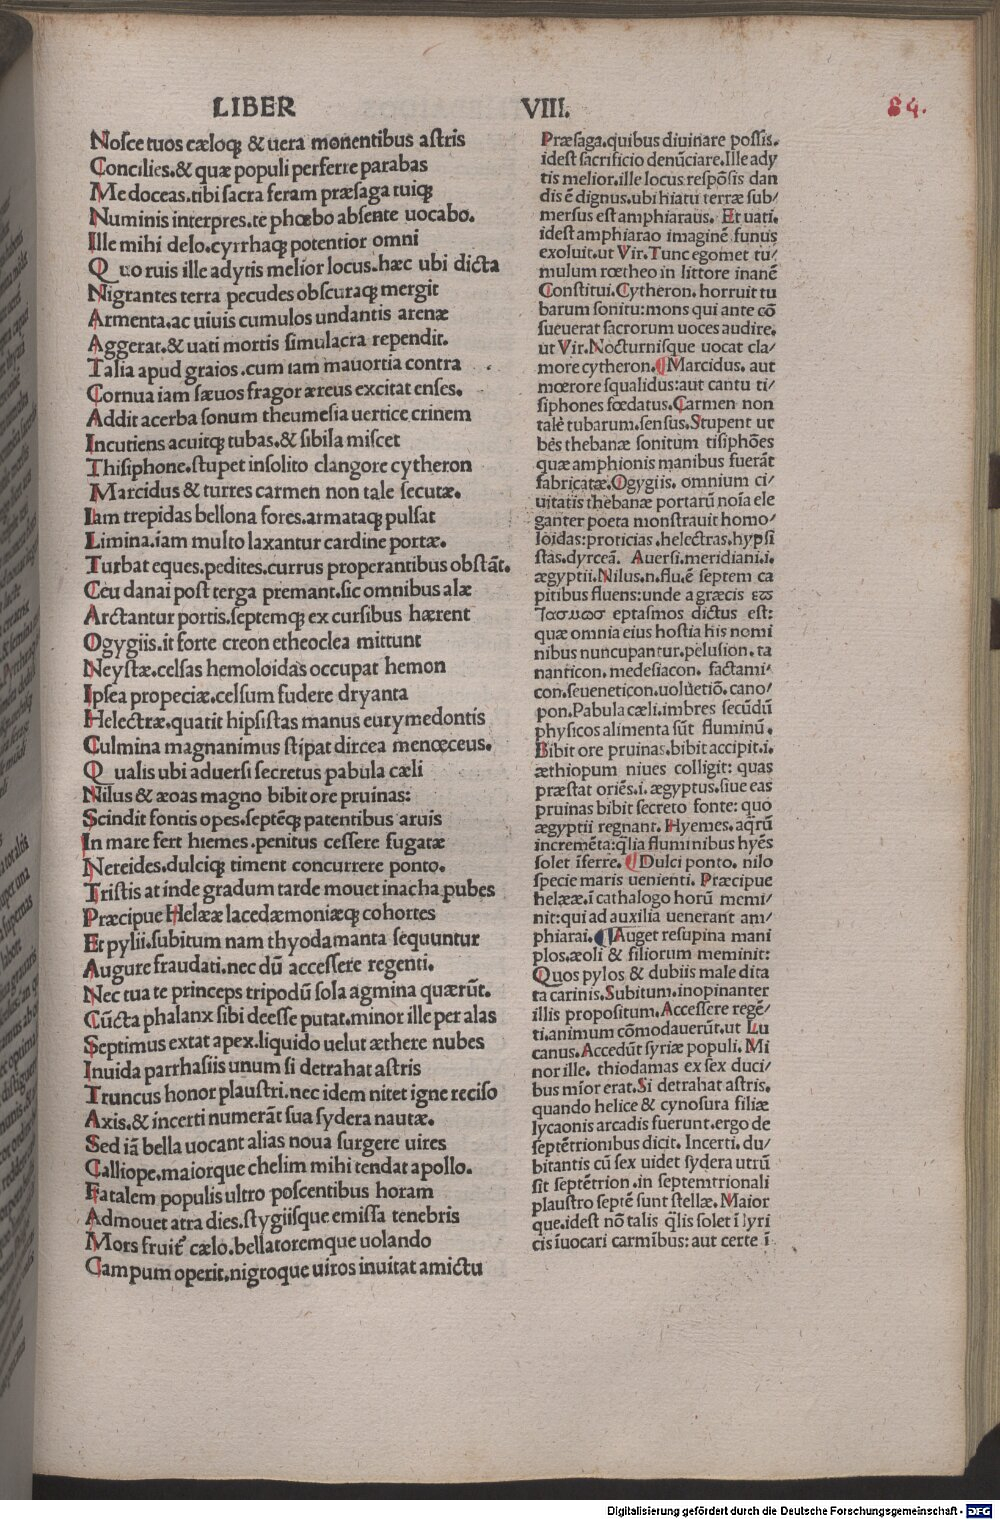 LIBER VIII. 84.
Nosce tuos cæloq; & uera monentibus astris
Concilies.& quæ populi perferre parabas
Me doceas.tibi sacra feram præsaga tuiq;
Numinis interpres.te phœbo absente uocabo.
Ille mihi delo.cyrrhaq; potentior omni
Quo ruis ille adytis melior locus.hæc ubi dicta
Nigrantes terra pecudes obscuraq; mergit
Armenta.ac uiuis cumulos undantis arenæ
Aggerat.& uati mortis simulacra rependit.
Talia apud graios.cum iam mauortia contra
Cornua iam sæuos fragor æreus excitat enses.
Addit acerba sonum theumesia uertice crinem
Incutiens acuitq; tubas.& sibila miscet
Thisiphone.stupet insolito clangore cytheron
Marcidus & turres carmen non tale secutæ.
Iam trepidas bellona fores.armataq; pulsat
Limina.iam multo laxantur cardine portæ.
Turbat eques.pedites.currus properantibus obstāt.
Ceu danai post terga premant.sic omnibus alæ
Arctantur portis.septemq; ex cursibus hærent
Ogygiis.it forte creon etheoclea mittunt
Neystæ.celsas hemoloidas occupat hemon
Ipsea propeciæ.celsum fudere dryanta
Helectræ.quatit hipsistas manus eurymedontis
Culmina magnanimus stipat dircea menœceus.
Qualis ubi aduersi secretus pabula cæli
Nilus & æoas magno bibit ore pruinas:
Scindit fontis opes.septēq; patentibus aruis
In mare fert hiemes.penitus cessere fugatæ
Nereides.dulciq; timent concurrere ponto.
Tristis at inde gradum tarde mouet inacha pubes
Præcipue Helææ lacedæmoniæq; cohortes
Et pylii.subitum nam thyodamanta sequuntur
Augure fraudati.nec dū accessere regenti.
Nec tua te princeps tripodū sola agmina quærūt.
Cūcta phalanx sibi deesse putat.minor ille per alas
Septimus extat apex.liquido uelut æthere nubes
Inuida parrhasiis unum si detrahat astris
Truncus honor plaustri.nec idem nitet igne reciso
Axis.& incerti numerāt sua sydera nautæ.
Sed iā bella uocant alias noua surgere uires
Calliope.maiorque chelim mihi tendat apollo.
Fatalem populis ultro poscentibus horam
Admouet atra dies.stygiisque emissa tenebris
Mors fruit' cælo.bellatoremque uolando
Campum operit.nigroque uiros inuitat amictu
Præsaga.quibus diuinare possis.
idest sacrificio denūciare.Ille ady
tis melior.ille locus respōsis dan
dis ē dignus.ubi hiatu terræ sub/
mersus est amphiaraus. Et uati.
idest amphiarao imaginē funus
exoluit.ut Vir.Tunc egomet tu/
mulum rœtheo in littore inanē
Constitui.Cytheron.horruit tu
barum sonitu:mons qui ante cō
sueuerat sacrorum uoces audire.
ut Vir.Nocturnisque uocat cla/
more cytheron.¶Marcidus. aut
mœrore squalidus:aut cantu ti/
siphones fœdatus.Carmen non
talē tubarum.sensus.Stupent ur
bēs thebanæ sonitum tisiphōes
quæ amphionis manibus fuerāt
fabricatæ.Ogygiis. omnium ci/
uitatis thebanæ portarū noīa ele
ganter poeta monstrauit homo/
loidas:proticias.helectras.hypsi
stas.dyrceā. Auersi.meridiani.i.
ægyptii.Nilus.n.flu.ē septem ca
pitibus fluens:unde a græcis
eptasmos dictus est:
quæ omnia eius hostia his nomi
nibus nuncupantur.pelusion.ta
nanticon.medesiacon. factami/
con.seueneticon.uolūetiō.cano/
pon.Pabula cæli.imbres secūdū
physicos alimenta sūt fluminū.
Bibit ore pruinas.bibit accipit.i.
æthiopum niues colligit: quas
præstat oriēs.i. ægyptus.siue eas
pruinas bibit secreto fonte: quo
ægyptii regnant. Hyemes. aq̄rū
incremēta:q̄lia fluminibus hyēs
solet īferre. ¶ Dulci ponto. nilo
specie maris uenienti. Præcipue
helææ.ī cathalogo horū memi/
nit:qui ad auxilia uenerant am/
phiarai.¶Auget resupina mani
plos.æoli & filiorum meminit:
Quos pylos & dubiis male dita
ta carinis.Subitum.inopinanter
illis propositum.Accessere regē/
ti.animum cōmodauerūt.ut Lu
canus.Accedūt syriæ populi. Mi
nor ille. thiodamas ex sex duci/
bus mīor erat.Si detrahat astris.
quando helice & cynosura filiæ
lycaonis arcadis fuerunt.ergo de
septētrionibus dicit. Incerti. du/
bitantis cū sex uidet sydera utrū
sit septētrion.in septemtrionali
plaustro septē sunt stellæ. Maior
que.idest nō talis q̄lis solet ī lyri
cis īuocari carmībus: aut certe ī
Digitalisierung gefördert durch die Deutsche Forschungsgemeinschaft - DFG